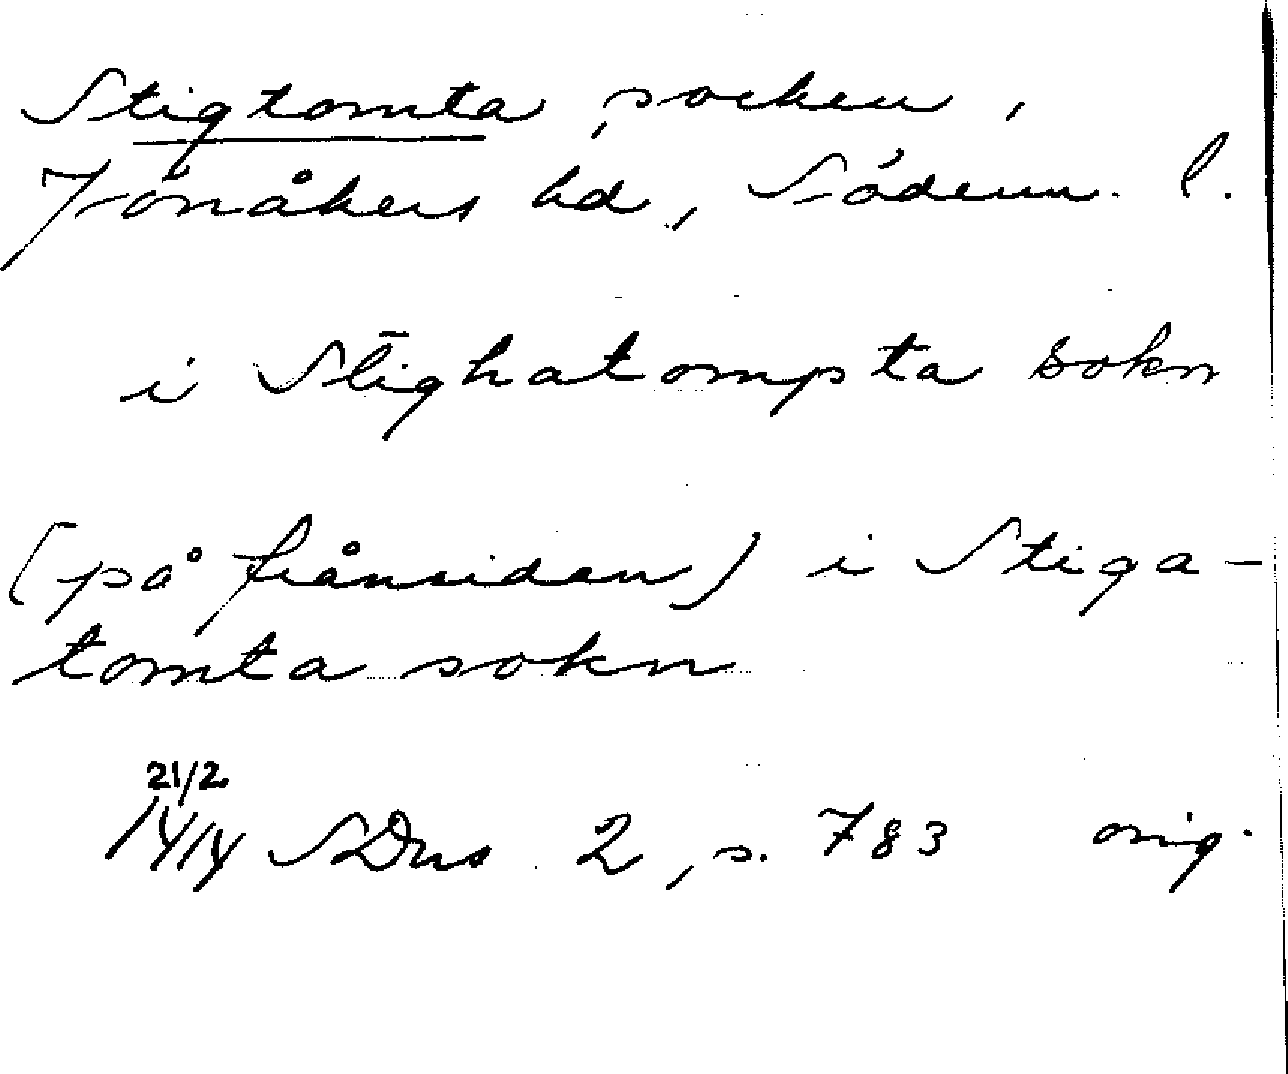 Stigtomta, socken,
Jönåkers hd, Söderm. l.
i Stighatompta sokn
(på frånsidan) i Stiga-
tomta sokn
21/2
1414 SDns 2, s. 783 orig.